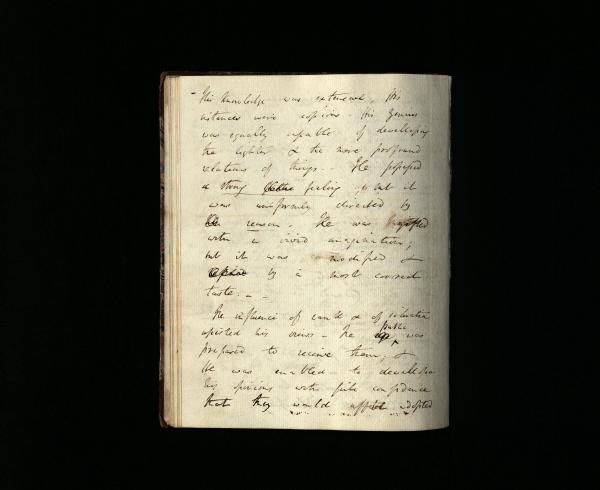 - His knowledge was extensive, His
instances were copious. His Genius
was equally capable of developing
the lighter & the more profound
relations of things. - He possessed
a strong feeling; but it
was uniformly directed by
reason. He was
with a vivid imagination;
but it was modified &
by a most correct
taste. - -
The influence of & of situation
assisted his views - The public was
prepared to receive them; &
He was enabled to develope
his opinions with full confidence
that they would adopted